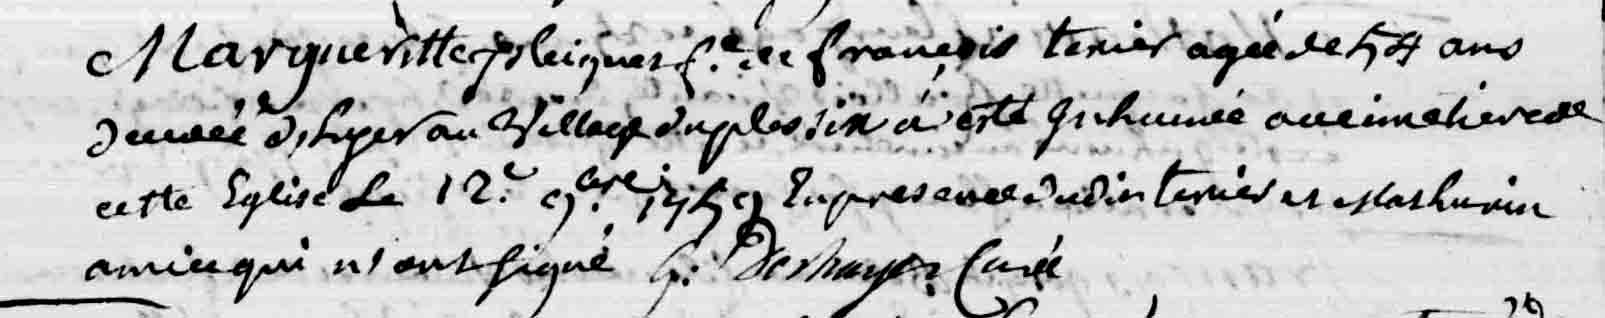 Margueritte pleignet f.e de françois terier agée de 54 ans
d'hyer au Village du plessix á esté Inhumée au cimetiere de
cette Eglise Le 12.e 9.bre 1759 En presence dudit terier et Mathurin
amice qui n'ont signé G. Deshayes Curé